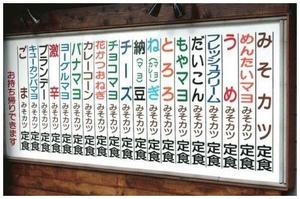 みそカツ定食
めんたいマヨみそカツ定食
うめみそカツ定食
フレッシュクリームみそカツ定食
だいこんみそカツ定食
もやマヨみそカツ定食
とろろみそカツ定食
ねぎみそカツ定食
納豆みそカツ定食
チーズみそカツ定食
チョコマヨみそカツ定食
花かつおねぎみそカツ定食
カレーコーンみそカツ定食
バナマヨみそカツ定食
ヨーグルマヨみそカツ定食
激辛みそカツ定食
ブランデーみそカツ定食
キューカンバマヨみそカツ定食
ごまみそカツ定食
お持ち帰りできます